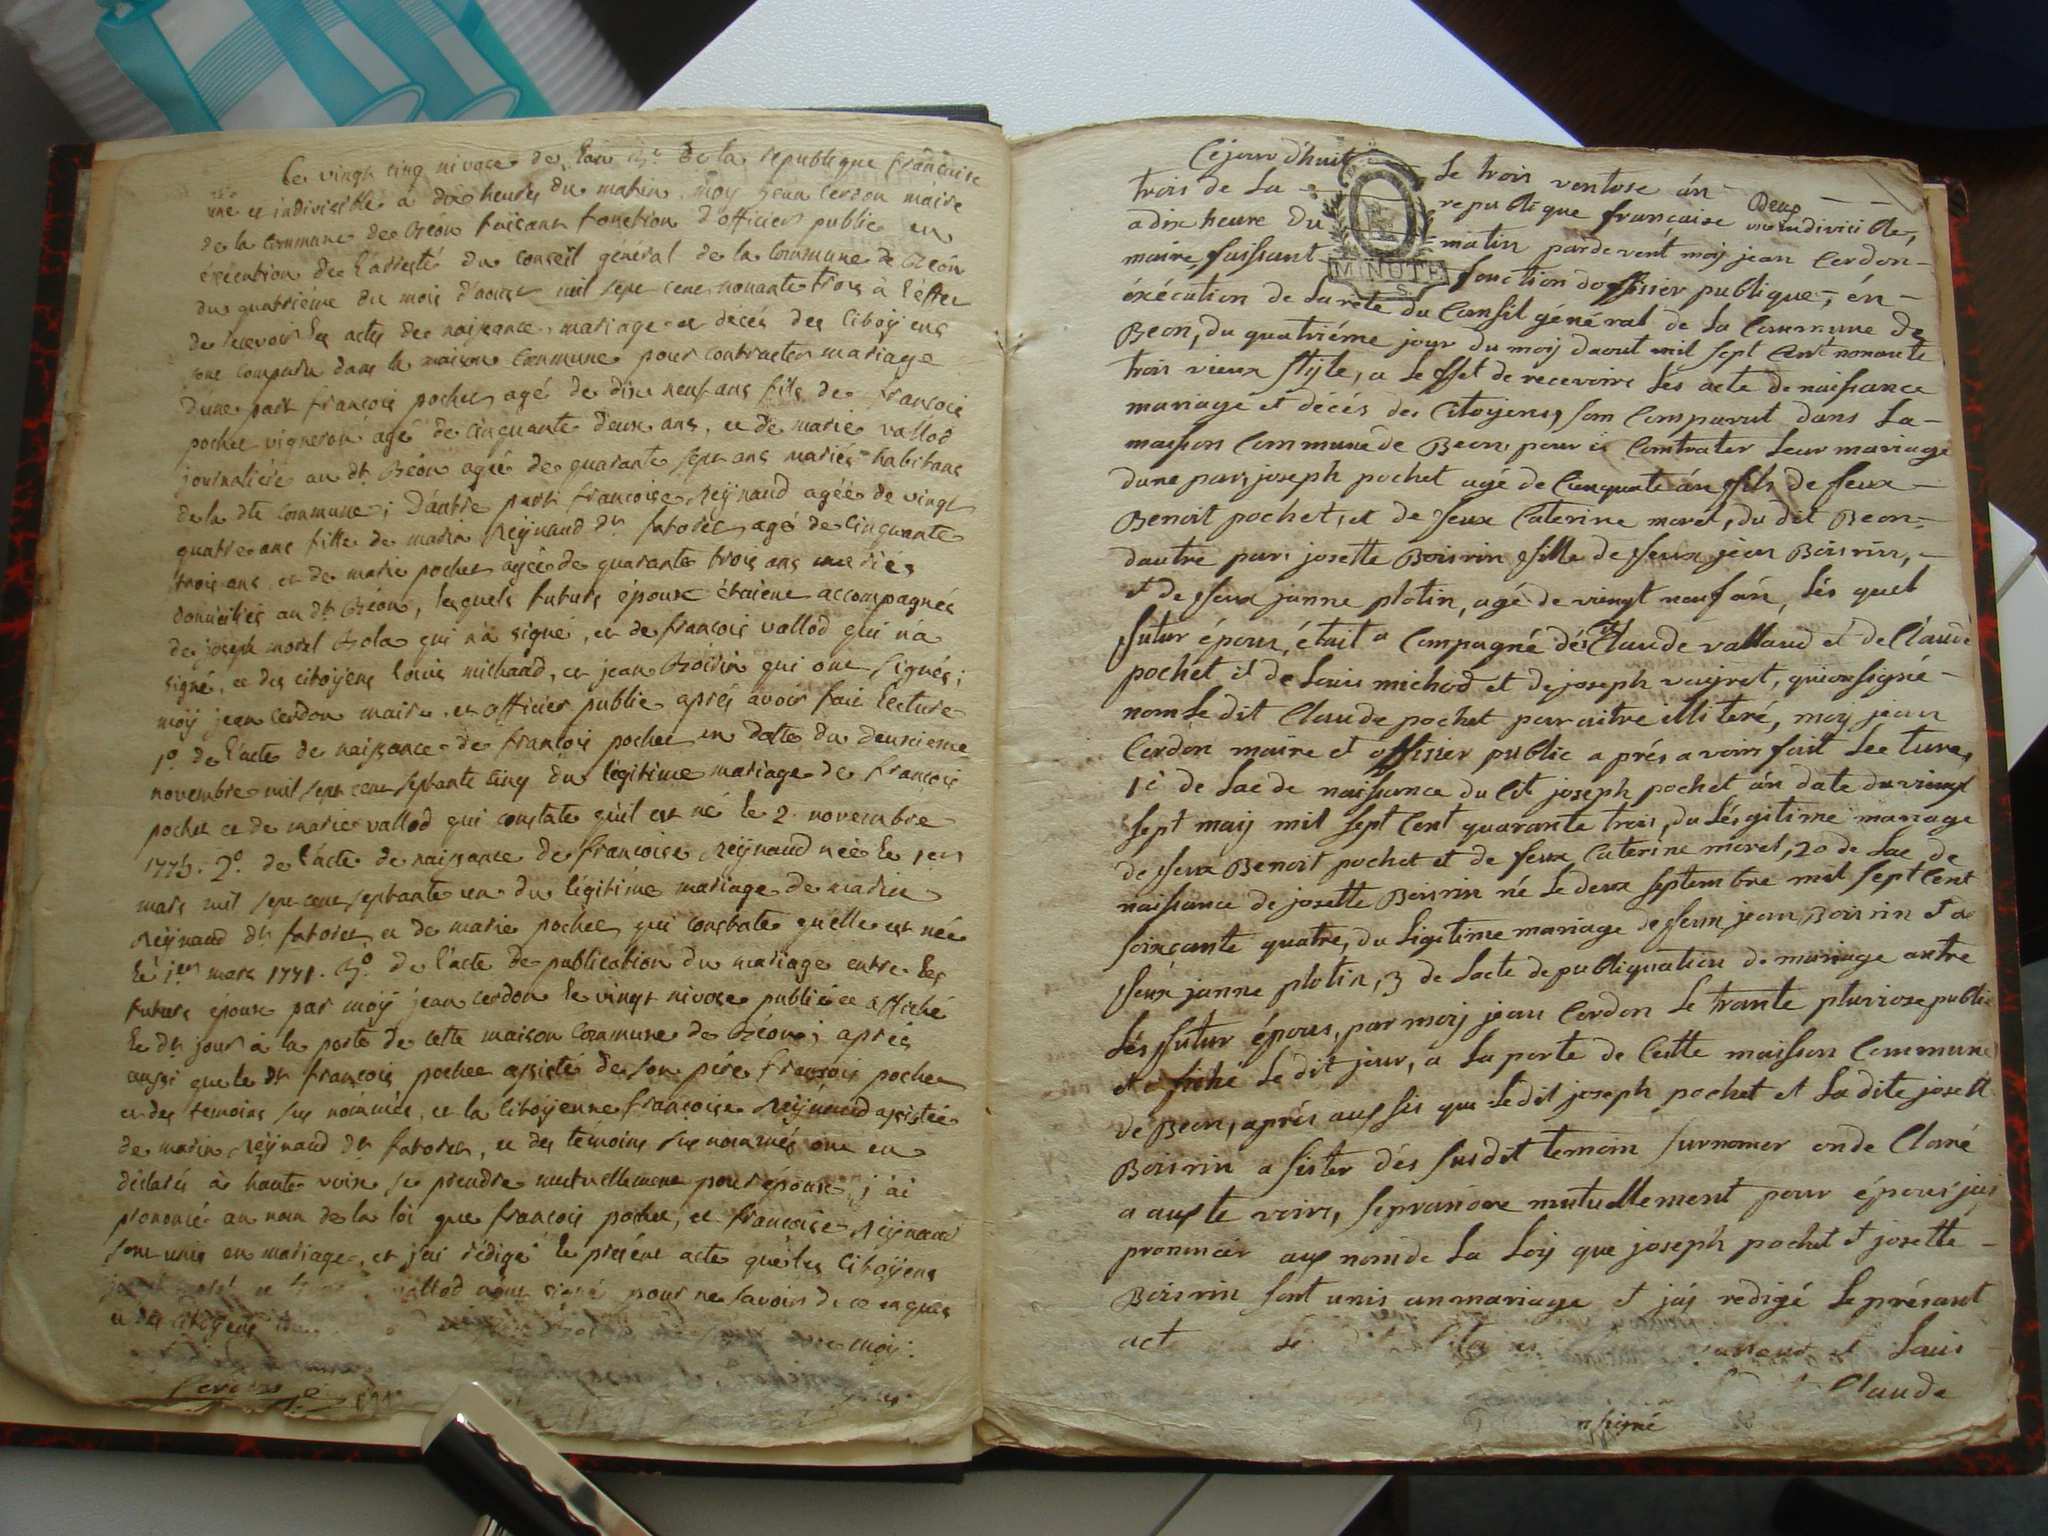 Le vingt cinq nivose de l'an de la republique francaise
une et indivisible à dix heures du matin moy jean Cerdon maire
de la Commune de Béon faisant fonction d'officier public en
éxécution de l'arresté du conseil général de la Commune de Béon
du quatriéme du mois d'aoust mil sept cent nonante trois à l'effet
de recevoir les actes de naissance, mariage et décés des Citoÿens
sont comparu dans la maison Commune pour contracter mariage
d'une part françois pochet agé de dix neuf ans fils de françois
pochet vigneron agé de cinquante deux ans, et de marie vallod
journaliére au dt Béon agée de quarante sept ans mariés habitans
de la dte Commune; D'autre part francoise Reÿnaud agée de vingt
quatre ans fille de marin Reÿnaud dt fatoret agé de Cinquante
trois ans et de marie pochet agée de quarante trois ans mariés
domiciliés au dt Béon, lesquels futurs époux étaient accompagnés
de joseph morel Bola qui n'a signé, et de françois vallod qui n'a
signé, et des citoÿens louis michaud, et jean Boisrin qui ont signés;
moÿ jean Cerdon maire et officier public aprés avoir fait lecture
1º. de l'acte de naissance de françois pochet en datte du deuxieme
novembre mil sept cent septante cinq du légitime mariage de françois
pochet et de marie vallod qui constate qu'il est né le 2 novembre
1775. 2º. de l'acte de naissance de francoise Reÿnaud née le 1er
mars mil sept cent septante un du légitime mariage de marin
Reÿnaud dt fatoret et de marie pochet qui constate qu'elle est née
le 1er mars 1771. 3º. de l'acte de publication du mariage entre les
futurs époux par moÿ jean Cerdon le vingt nivose publié et affiché
le dt jour à la porte de cette maison Commune de Béon; aprés
aussi que le dt françois pochet assisté de son pére françois pochet
et des temoins sus nommés, et la citoÿenne francoise Reÿnaud assistée
de marin Reÿnaud dt fatoret, et des témoins sus nommés ont en
déclaré à haute voix se prendre mutuellement pour époux, j'ai
prononcé au nom de la loi que françois pochet, et francoise Reÿnaud
sont unis en mariage, et j'ai rédigé le présent acte que les Citoÿens
vallod n'ont signé pour ne savoir de ce enquis
et des Citoÿens moÿ.
Cejour d'huit Le trois ventose án Deux
trois de La republique française une indivicible,
a dix heure du matin pardevent moÿ jean Cerdon
maire faissant fonction doffisier publique, én
MINUTE
éxécution de Larrété du Consil général de La Commune de
Beon, du quatriéme jour du moÿ daout mil sept Cent nonante
trois vieux stÿle, a Leffet de recevoire Lés acte de naissance
mariage et décés des Citoyens, som Comparut dans La
maison Commune de Beon pour i Contrater Leur mariage
dune part joseph pochet agé de Cinquate án fils de feux
Benoit pochet, et de feux Caterine morel, du dit Beon
dautre part josette Boisrin fille de feux jean Boisrin,
et de feux janne plotin, agé de vingt neuf án, Lés quel
futur épous, étuit a Compagné dés Cit Claude vallaud et de Claude
pochet et de Louis michod et de joseph vuÿret, qui on signé
nom Le dit Claude pochet par aitre illiteré, moÿ jean
Cerdon maire et offisier public a prés avoir fait Lecture,
1é de Lac de naissance du Cit joseph pochet án date du vingt
sept maÿ mil sept Cent quarante trois, du Lésgitime mariage
de feux Benoit pochet et de feux Caterine morel, 2o de Lac de
naissance de josette Boisrin né Le deux septembre mil sept Cent
soixcante quatre, du Ligitime mariage de feux jean Boisrin et de
feux janne plotin, 3 de Lacte de publiquation de mariage antre
Lés futur épous, par moÿ jean Cerdon Le trante pluviose publié
et a fiché Le dit jour, a La porte de Cette maison Commune
de Beon, aprés aussis que Le dit joseph pochet et La dite josett
Boisrin a sister dés susdit temoin surnomer onde Claré
a aute voix, seprandre mutuellement pour épous jaÿ
prononcér aux nom de La Loÿ que joseph pochet et josette
Boisrin sont unis an mariage et jaÿ redigé Le présant
act Le et Louis
Claude
signé